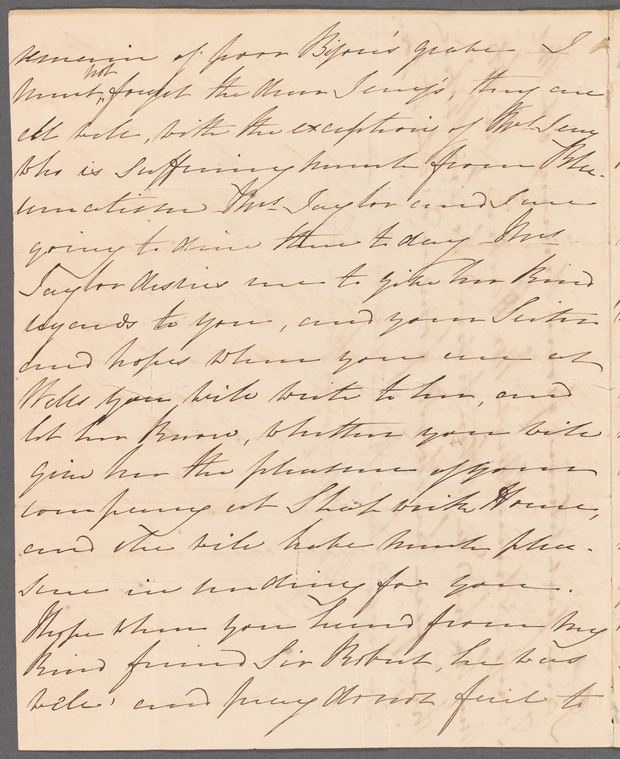 remain of poor Bijou's grave I
must not forget the dear Jeny's, they are
all well, with the exception of Mrs. Jeny
who is suffering much from Rheu-
matism Mrs. Taylor and I are
going to dine there to day Mrs.
Taylor desires me to give her Kind
regards to you, and your Sister
and hopes when you are at
Wells you will write to her, and
let her Know, whether you will
give her the pleasure of your
company at House,
and she will have much plea-
sure in sending for you.
I hope when you heard from my
Kind friend Sir Robert, he was
well; and pray do not fail to